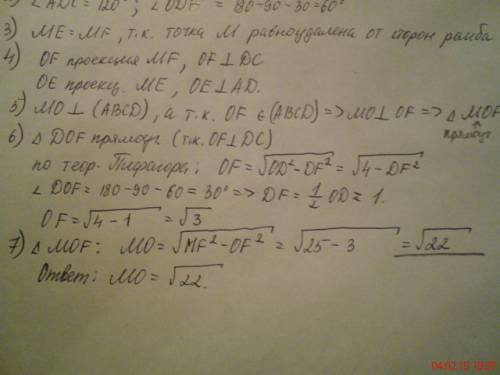 ∠ADC = 120°; ∠ODF = 180-90-30=60°
3) ME = MF, т.к. точка М равноудалена от сторон ромба
4) OF проекция MF, OF⊥DC
OE проекц. ME, OE⊥AD.
5) MO⊥(ABCD), а т.к. OF ∈(ABCD) => MO⊥OF => △MOF
прямоуг.
6) △DOF прямоуг (т.к. OF⊥DC)
по теор. Пифагора: OF = √OD²-DF² = √4-DF²
∠DOF = 180-90-60=30° => DF = 1/2 OD = 1.
OF = √4-1 = √3
7) △MOF: MO = √MF²-OF² = √25-3 = √22
Ответ: MO = √22.